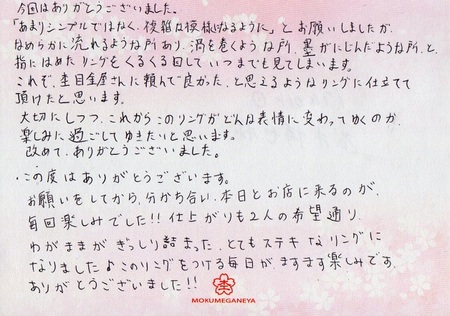 今回はありがとうございました。
「あまりシンプルではなく、複雑な模様になるように」とお願いしましたが、
なめらかに流れるような所あり、渦を巻くような所、墨がにじんだような所、と、
指にはめたリングをくるくる回していつまでも見てしまいます。
これぞ、杢目金屋さんに頼んで良かった、と思えるようなリングに仕立てて
頂けたと思います。
大切にしつつ、これからこのリングがどんな表情に変わってゆくのか、
楽しみに過ごしてゆきたいと思います。
改めて、ありがとうございました。
・この度はありがとうございます。
お願いをしてから、分かち合い、本日とお店に来るのが、
毎回楽しみでした!!仕上がりも2人の希望通り、
わがままがぎっしり詰まった、とてもステキなリングに
なりました♪このリングをつける毎日がますます楽しみです。
ありがとうございました!!
MOKUMEGANEYA